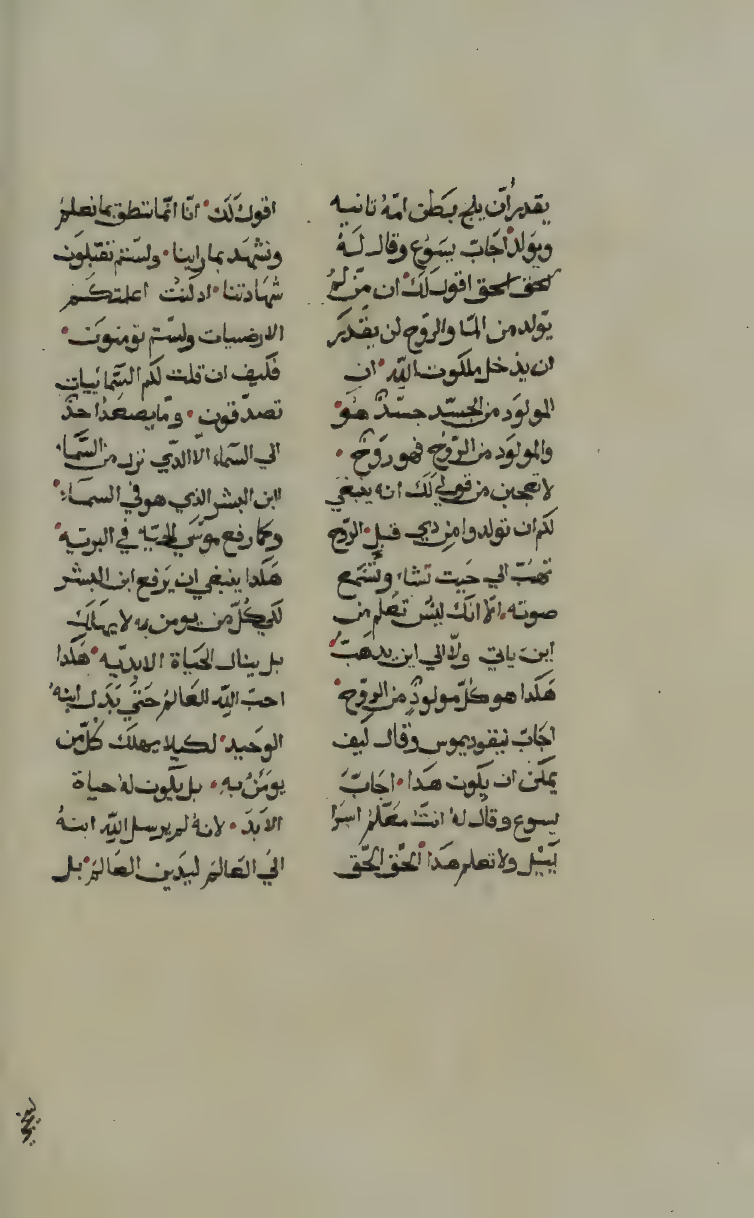 يقدر أن يلج بطن امّهُ ثانيه
ويولد اجاب يسوع وقال لهُ
الحق الحق اقول لك ان من لم
يولد من الما والروح لن يقدر
ان يدخل ملكوت الله ان
المولود من الجسد جسدٌ هو
والمولود من الروح فهو روح
لا تعجبن من قولي لك انه ينبغي
لكم ان تولدوا من دي قبل الريح
تهبّ الي حيت تشا وتسمع
صوته الا انك ليس تعلم من
اين ياتي ولا الي اين يدهب
هكدا هو كل مولودٍ من الروح
اجاب نيقوديموس وقال كيف
يمكن ان يكون هدا اجابَ
يسوع وقال له انت معلم اسرا
ييل ولا تعلم هدا الحق الحق
اقول لك انّا انّما ننطق بما نعلم
ونشهد بما راينا ولستم تقبلون
شهادتنا اد كنت اعلمتكم
الارضيات ولستم تومنون
فكيف ان قلت لكم السمائيات
تصدقون وما يصعد احدٌ
الي السماء الا الدي نزل من السماء
ابن البشر الذي هو في السماء
وكما رفع موسي الحيّه في البريّه
هكدا ينبغي ان يرفع ابن البشر
لكي كلّ من يومن به لا يهلك
بل ينال الحياة الابديّه هكدا
احبّ الله العالم حتي بدل ابنه
الوحيد لكيلا يهلك كلّ من
يومن به بل يكون له حياة
الابد لانهُ لم يرسل الله ابنهُ
الي العالم ليدين العالم بل